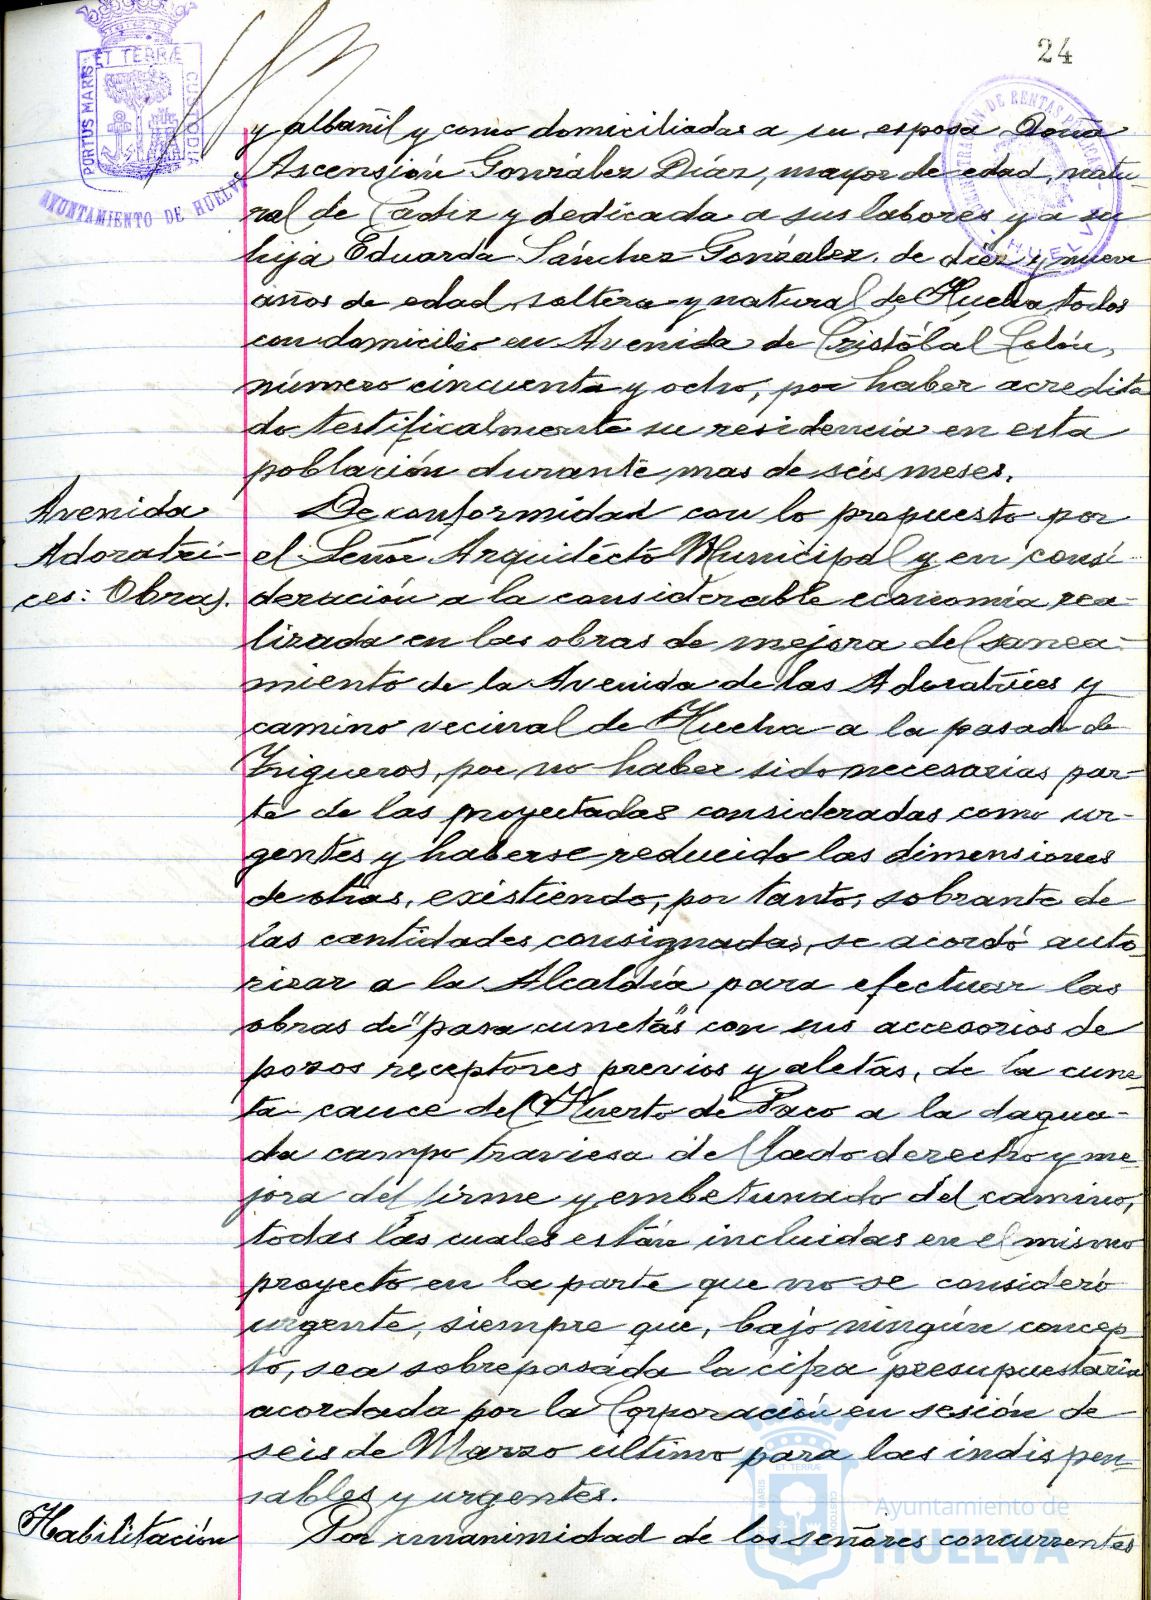 24
PORTUS MARIS ET TERRÆ CUSTODIA
AYUNTAMIENTO DE HUELVA
y albañil y como domiciliadas a su esposa Doña
Ascensión González Díaz, mayor de edad, natu-
ral de Cadiz y dedicada a sus labores y a su
hija Eduarda Sánchez González, de diez y nueve
años de edad, soltera y natural de Huelva, todos
con domicilio en Avenida de Cristóbal Colón,
número cincuenta y ocho, por haber acredita
do testificalmente su residencia en esta
población durante mas de seis meses.
Avenida
Adoratri-
ces: Obras.
De conformidad con lo propuesto por
el Señor Arquitecto Municipal y en consi-
deración a la considerable economía rea-
lizada en las obras de mejora del sanea-
miento de la Avenida de las Adoratrices y
camino vecinal de Huelva a la pasada de
Trigueros, por no haber sido necesarias par-
te de las proyectadas consideradas como ur-
gentes y haberse reducido las dimensiones
de otras, existiendo, por tanto, sobrante de
las cantidades consignadas, se acordó auto
rizar a la Alcaldía para efectuar las
obras de "pasa cunetas" con sus accesorios de
pozos receptores previos y aletas, de la cune-
ta cauce del Huerto de Paco a la dagua-
da campo traviesa del lado derecho y me
jora del firme y embetunado del camino,
todas las cuales están incluidas en el mismo
proyecto en la parte que no se consideró
urgente, siempre que, bajo ningún concep
to, sea sobrepasada la cifra presupuestaria
acordada por la Corporación en sesión de
seis de Marzo último para las indispen-
sables y urgentes.
Habilitación
Por unanimidad de los señores concurrentes
Ayuntamiento de
HUELVA